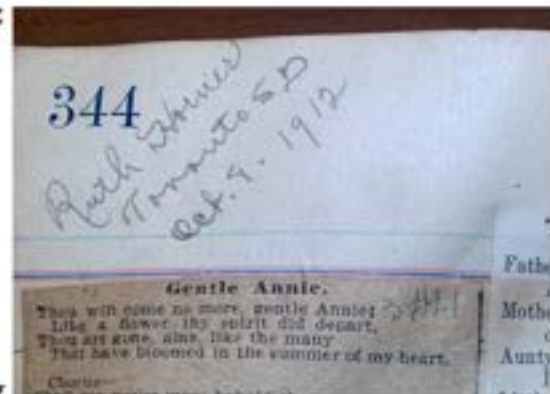 344
Ruth
Toronto S D
Oct. 9. 1912
Gentle Annie.
Thou wilt come no more, gentle Annie;
Like a flower thy spirit did depart,
Thou art gone, alas, like the many
That have bloomed in the summer of my heart.
Chorus—
Fathe
Mothe
Aunty